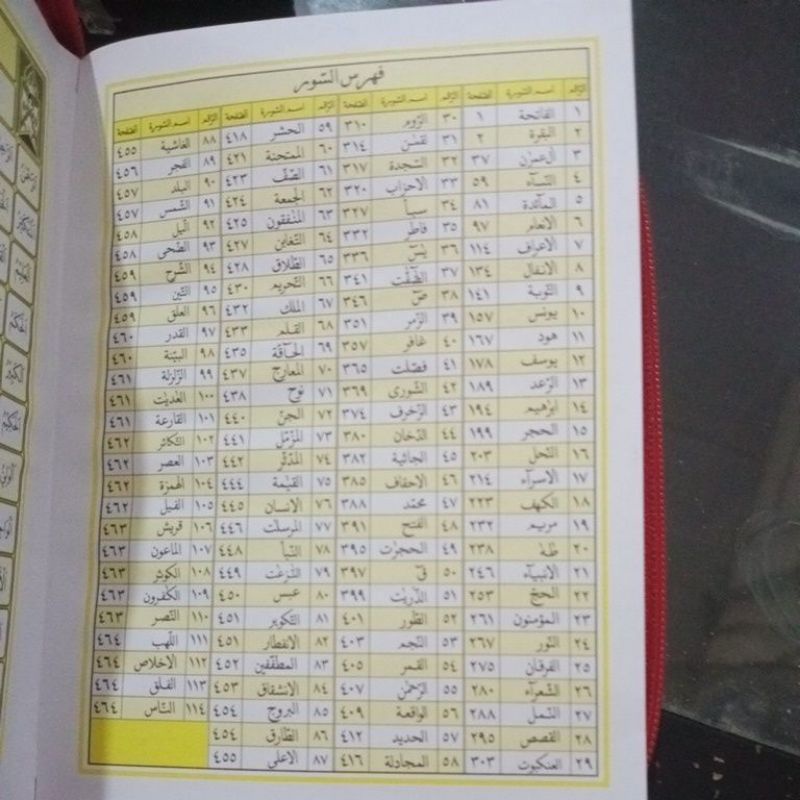 فهرس السّور
الرّقم اسم السّورة الصّفحة
١ الفاتحة ١
٢ البقرة ٢
٣ آل عمرٰن ٣٧
٤ النّسآء ٥٩
٥ المآئدة ٨١
٦ الانعام ٩٧
٧ الاعراف ١١٤
٨ الانفال ١٣٤
٩ التّوبة ١٤١
١٠ يونس ١٥٧
١١ هود ١٦٧
١٢ يوسف ١٧٨
١٣ الرّعد ١٨٩
١٤ ابرٰهيم ١٩٤
١٥ الحجر ١٩٩
١٦ النّحل ٢٠٣
١٧ الاسرآء ٢١٤
١٨ الكهف ٢٢٣
١٩ مريم ٢٣٢
٢٠ طٰهٰ ٢٣٨
٢١ الانبيآء ٢٤٦
٢٢ الحجّ ٢٥٣
٢٣ المؤمنون ٢٦١
٢٤ النّور ٢٦٧
٢٥ الفرقان ٢٧٥
٢٦ الشّعرآء ٢٨٠
٢٧ النّمل ٢٨٨
٢٨ القصص ٢٩٥
٢٩ العنكبوت ٣٠٣
الرّقم اسم السّورة الصّفحة
٣٠ الرّوم ٣١٠
٣١ لقمٰن ٣١٤
٣٢ السّجدة ٣١٧
٣٣ الاحزاب ٣٢٠
٣٤ سبأ ٣٢٧
٣٥ فاطر ٣٣٢
٣٦ يٰسٓ ٣٣٦
٣٧ الصّٰفّٰت ٣٤١
٣٨ صٓ ٣٤٦
٣٩ الزّمر ٣٥١
٤٠ غافر ٣٥٧
٤١ فصّلت ٣٦٥
٤٢ الشّورى ٣٦٩
٤٣ الزّخرف ٣٧٤
٤٤ الدّخان ٣٨٠
٤٥ الجاثية ٣٨٢
٤٦ الاحقاف ٣٨٥
٤٧ محمّد ٣٨٨
٤٨ الفتح ٣٩١
٤٩ الحجرٰت ٣٩٥
٥٠ قٓ ٣٩٧
٥١ الذّٰريٰت ٣٩٩
٥٢ الطّور ٤٠١
٥٣ النّجم ٤٠٣
٥٤ القمر ٤٠٥
٥٥ الرّحمٰن ٤٠٧
٥٦ الواقعة ٤٠٩
٥٧ الحديد ٤١٢
٥٨ المجادلة ٤١٦
الرّقم اسم السّورة الصّفحة
٥٩ الحشر ٤١٨
٦٠ الممتحنة ٤٢١
٦١ الصّفّ ٤٢٣
٦٢ الجمعة ٤٢٤
٦٣ المنٰفقون ٤٢٥
٦٤ التّغابن ٤٢٧
٦٥ الطّلاق ٤٢٨
٦٦ التّحريم ٤٣٠
٦٧ الملك ٤٣٢
٦٨ القلم ٤٣٣
٦٩ الحآقّة ٤٣٥
٧٠ المعارج ٤٣٧
٧١ نوح ٤٣٨
٧٢ الجنّ ٤٤٠
٧٣ المزّمّل ٤٤١
٧٤ المدّثّر ٤٤٢
٧٥ القيٰمة ٤٤٤
٧٦ الانسان ٤٤٥
٧٧ المرسلٰت ٤٤٦
٧٨ النّبأ ٤٤٨
٧٩ النّٰزعٰت ٤٤٩
٨٠ عبس ٤٥٠
٨١ التّكوير ٤٥١
٨٢ الانفطار ٤٥١
٨٣ المطفّفين ٤٥٢
٨٤ الانشقاق ٤٥٣
٨٥ البروج ٤٥٤
٨٦ الطّارق ٤٥٤
٨٧ الاعلى ٤٥٥
الرّقم اسم السّورة الصّفحة
٨٨ الغاشية ٤٥٥
٨٩ الفجر ٤٥٦
٩٠ البلد ٤٥٧
٩١ الشّمس ٤٥٧
٩٢ الّيل ٤٥٨
٩٣ الضّحى ٤٥٨
٩٤ الشّرح ٤٥٩
٩٥ التّين ٤٥٩
٩٦ العلق ٤٥٩
٩٧ القدر ٤٦٠
٩٨ البيّنة ٤٦٠
٩٩ الزّلزلة ٤٦١
١٠٠ العٰديٰت ٤٦١
١٠١ القارعة ٤٦١
١٠٢ التّكاثر ٤٦٢
١٠٣ العصر ٤٦٢
١٠٤ الهمزة ٤٦٢
١٠٥ الفيل ٤٦٢
١٠٦ قريش ٤٦٣
١٠٧ الماعون ٤٦٣
١٠٨ الكوثر ٤٦٣
١٠٩ الكٰفرون ٤٦٣
١١٠ النّصر ٤٦٣
١١١ اللّهب ٤٦٤
١١٢ الاخلاص ٤٦٤
١١٣ الفلق ٤٦٤
١١٤ النّاس ٤٦٤